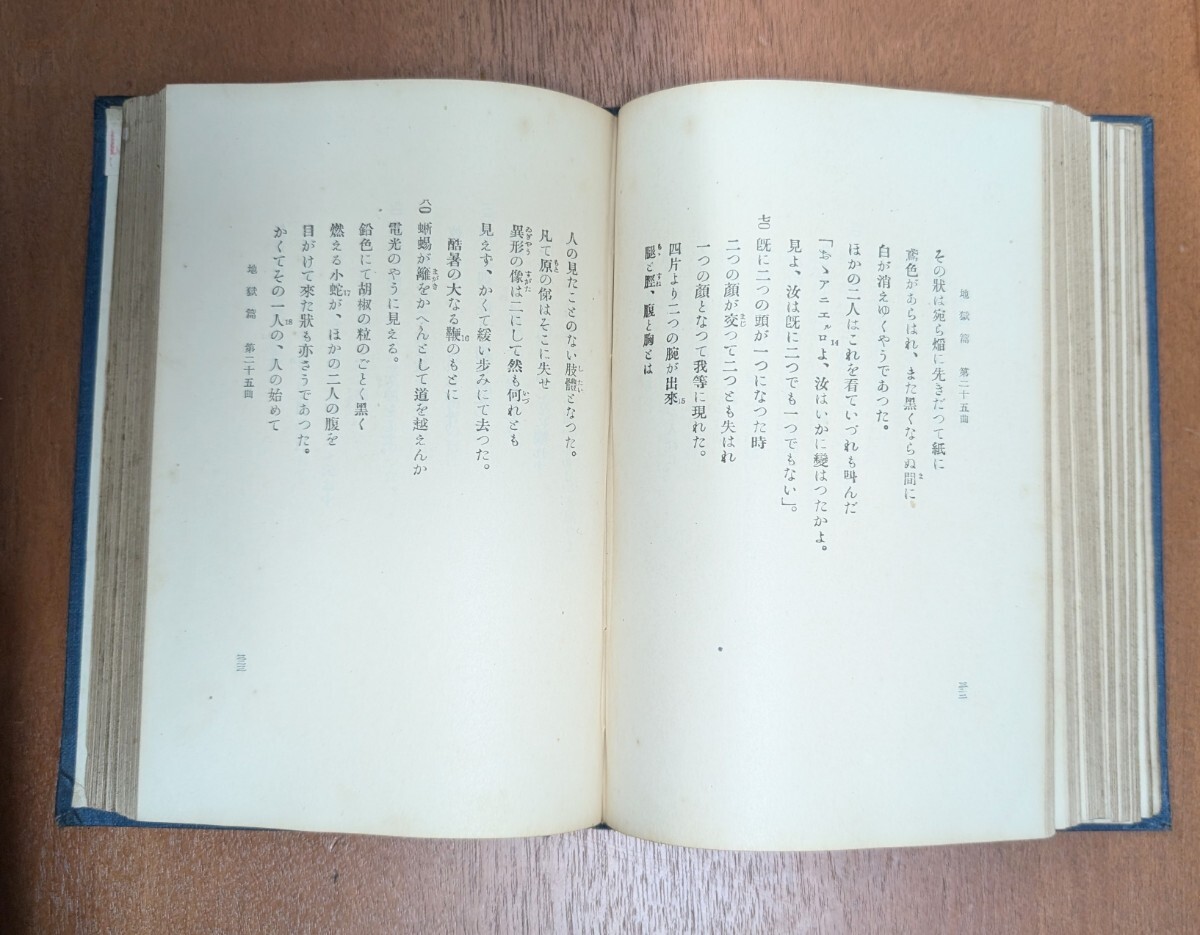 地獄篇 第二十五曲
その狀は宛ら焰に先きだつて紙に
鳶色があらはれ、また黑くならぬ間に
白が消えゆくやうであつた。
ほかの二人はこれを看ていづれも叫んだ
「おゝアニエルロよ、汝はいかに變はつたかよ。
見よ、汝は旣に二つでも一つでもない」。
七〇 旣に二つの頭が一つになつた時
二つの顏が交つて二つとも失はれ
一つの顏となつて我等に現れた。
四片より二つの腕が出來
腿と脛、腹と胸とは
人の見たことのない肢體となつた。
凡て原の俤はそこに失せ
異形の像は二にして然も何れとも
見えず、かくて緩い歩みにて去つた。
酷暑の大なる鞭のもとに
八〇 蜥蜴が籬をかへんとして道を越えんか
電光のやうに見える。
鉛色にて胡椒の粒のごとく黑く
燃える小蛇が、ほかの二人の腹を
目がけて來た狀も亦さうであつた。
かくてその一人の、人の始めて
地獄篇 第二十五曲